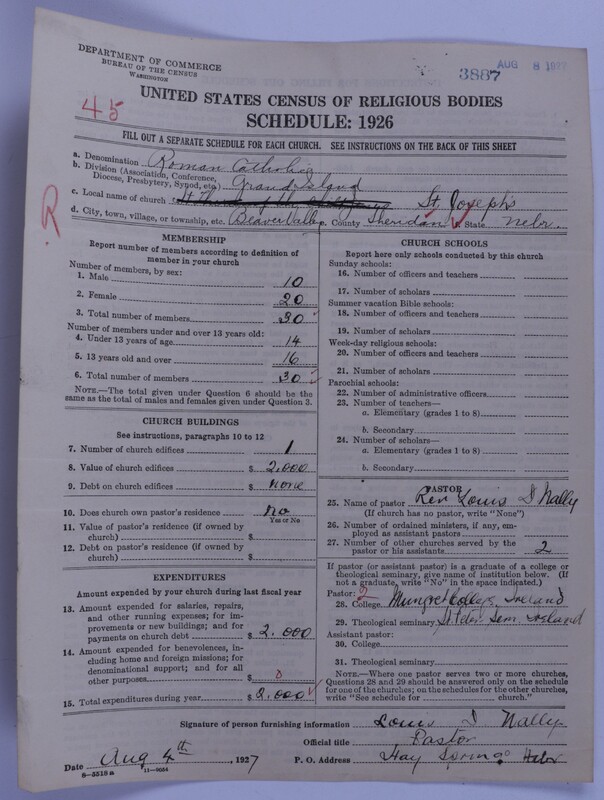 DEPARTMENT OF COMMERCE
BUREAU OF THE CENSUS
WASHINGTON
3887
AUG 8 1927
45
UNITED STATES CENSUS OF RELIGIOUS BODIES
SCHEDULE: 1926
FILL OUT A SEPARATE SCHEDULE FOR EACH CHURCH. SEE INSTRUCTIONS ON THE BACK OF THIS SHEET
a. Denomination Roman Catholic
b. Division (Association, Conference, Diocese, Presbytery, Synod, etc.) Grand Island
c. Local name of church St. Joseph's
R
d. City, town, village, or township, etc. Beaver Valley e. County Sheridan f. State Nebr.
MEMBERSHIP
Report number of members according to definition of
member in your church
Number of members, by sex:
1. Male 10
2. Female 20
3. Total number of members 30
Number of members under and over 13 years old:
4. Under 13 years of age 14
5. 13 years old and over 16
6. Total number of members 30
NOTE.—The total given under Question 6 should be the
same as the total of males and females given under Question 3.
CHURCH BUILDINGS
See instructions, paragraphs 10 to 12
7. Number of church edifices 1
8. Value of church edifices $ 2,000
9. Debt on church edifices $ None
10. Does church own pastor's residence? No
Yes or No
11. Value of pastor's residence (if owned by
church) $
12. Debt on pastor's residence (if owned by
church) $
EXPENDITURES
Amount expended by your church during last fiscal year
13. Amount expended for salaries, repairs,
and other running expenses; for im-
provements or new buildings; and for
payments on church debt $ 2.000
14. Amount expended for benevolences, in-
cluding home and foreign missions; for
denominational support; and for all
other purposes $
15. Total expenditures during year $ 2.000
CHURCH SCHOOLS
Report here only schools conducted by this church
Sunday schools:
16. Number of officers and teachers
17. Number of scholars
Summer vacation Bible schools:
18. Number of officers and teachers
19. Number of scholars
Week-day religious schools:
20. Number of officers and teachers
21. Number of scholars
Parochial schools:
22. Number of administrative officers
23. Number of teachers—
a. Elementary (grades 1 to 8)
b. Secondary
24. Number of scholars—
a. Elementary (grades 1 to 8)
b. Secondary
PASTOR
25. Name of pastor Rev Louis I Nally
(If church has no pastor, write "None")
26. Number of ordained ministers, if any, em-
ployed as assistant pastors
27. Number of other churches served by the
pastor or his assistants 2
If pastor (or assistant pastor) is a graduate of a college or
theological seminary, give name of institution below. (If
not a graduate, write "No" in the space indicated.)
Pastor: 2
28. College Mungret College Ireland
29. Theological seminary Sem. Ireland
Assistant pastor:
30. College
31. Theological seminary
NOTE.—Where one pastor serves two or more churches,
Questions 28 and 29 should be answered only on the schedule
for one of the churches; on the schedules for the other churches,
write "See schedule for church."
Signature of person furnishing information Louis I Nally
Official title Pastor
Date Aug 4th, 1927 P. O. Address Hay Springs Nebr
8-5518a 11-9054